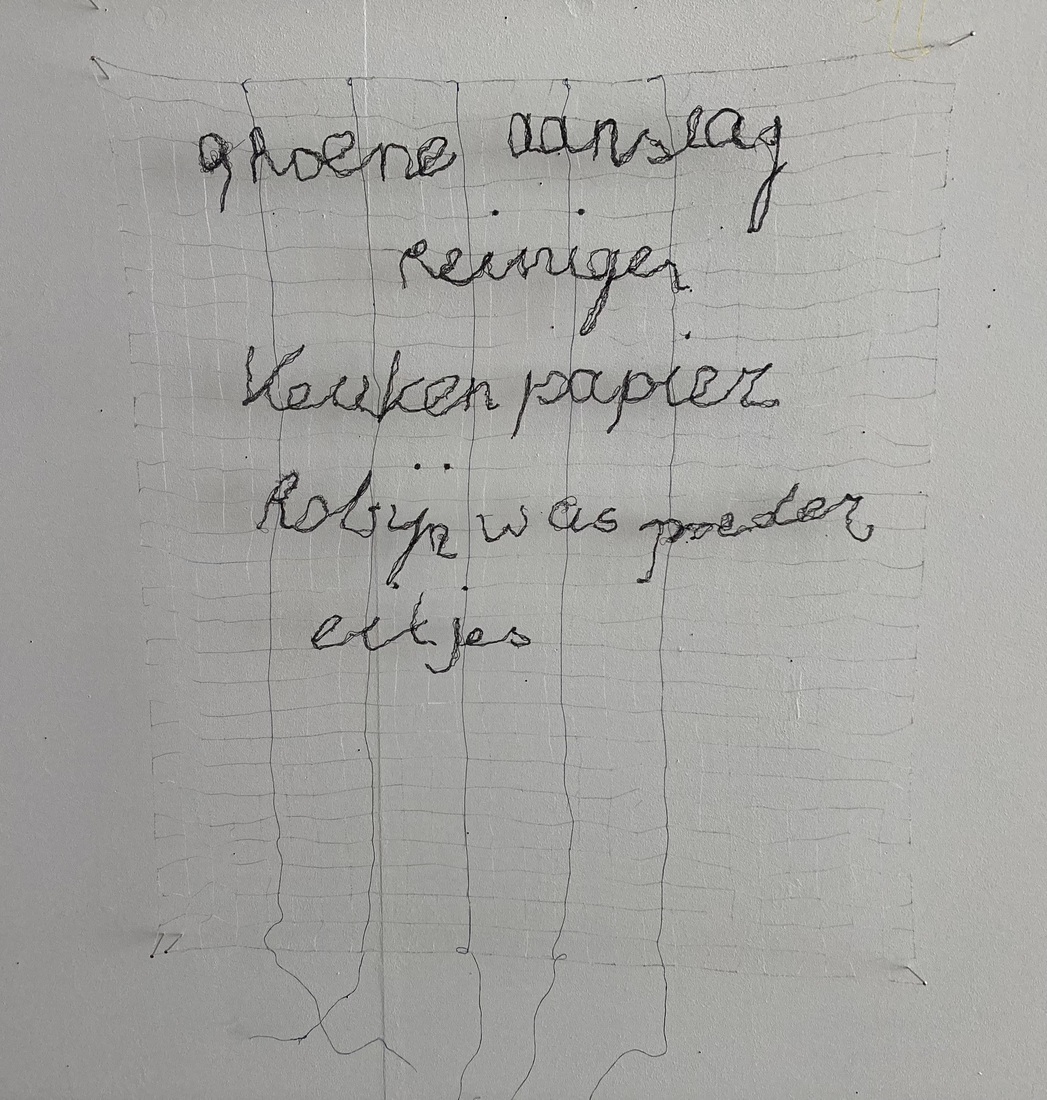 groene aanslag
reiniger
Keuken papier
Robijn was poeder
eitjes